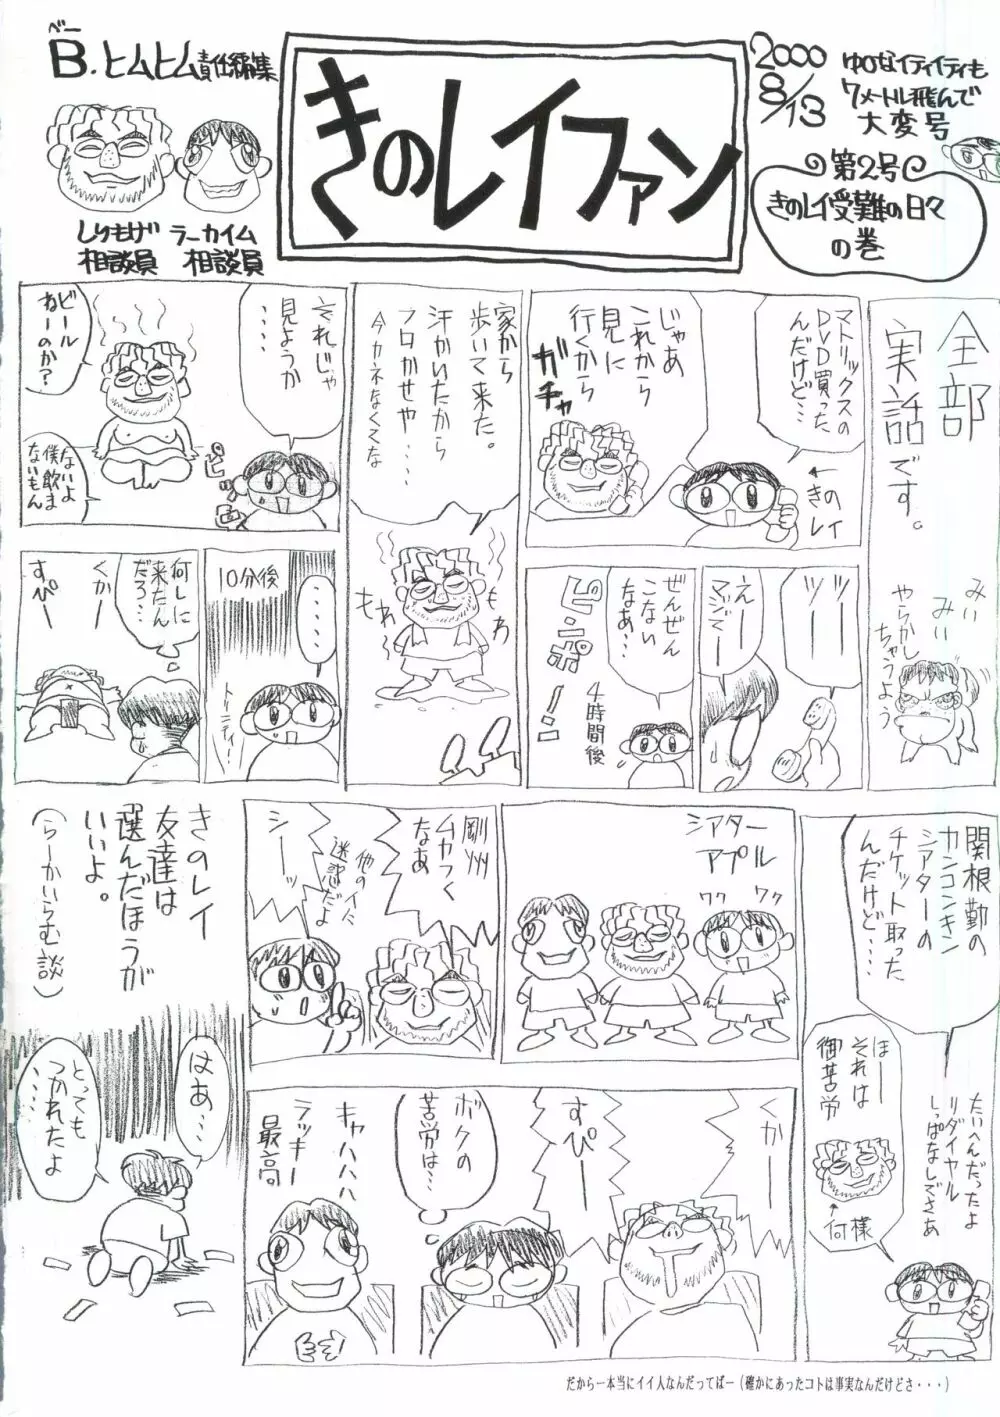 べー
B.ヒムヒム責任編集
しりもげ
相談員
ラーカイム
相談員
きのレイファン
2000
8/13
ゆびなイティイティも
7メートル飛んで
大変号
第2号
きのレイ受難の日々
の巻
全部
実話です。
みい
みい
やらかし
ちゃうよう
マトリックスの
DVD買った
んだけど…
←きの
レイ
じゃあ
これから
見に
行くから
ガチャ
ツー
ツー
えー
マジでー
ぜんぜん
こない
なあ…
4時間後
ピ・ポーン!
家から
歩いて来た。
汗かいたから
フロかせや‥‥
今カネなくてな
もわ
もわ
それじゃ
見ようか
‥‥
ピ
ビール
ねーのか?
ないよ
僕飲ま
ないもん
‥‥‥
10分後
トリニティー!
何しに
来たんだろ…
くかー
すぴー
関根勤の
カンコンキン
シアターの
チケット取った
んだけど‥‥
たいへんだったよ
リダイヤル
しっぱなしでさあ
ほー
それは
御苦労
↑
何様
シアター
アプル
ワク
ワク
剛州
ムカつく
なあ
シーッ
他の人に
迷惑だよ
くかー
すぴー
ボクの
苦労は…
キャハハハハ
ラッキー
最高
きのレイ
友達は
選んだほうが
いいよ。
(らーかいらむ談)
はあ‥‥
とっても
つかれたよ
‥‥‥
だからー本当にイイ人なんだってばー(確かにあったコトは事実なんだけどさ・・・)